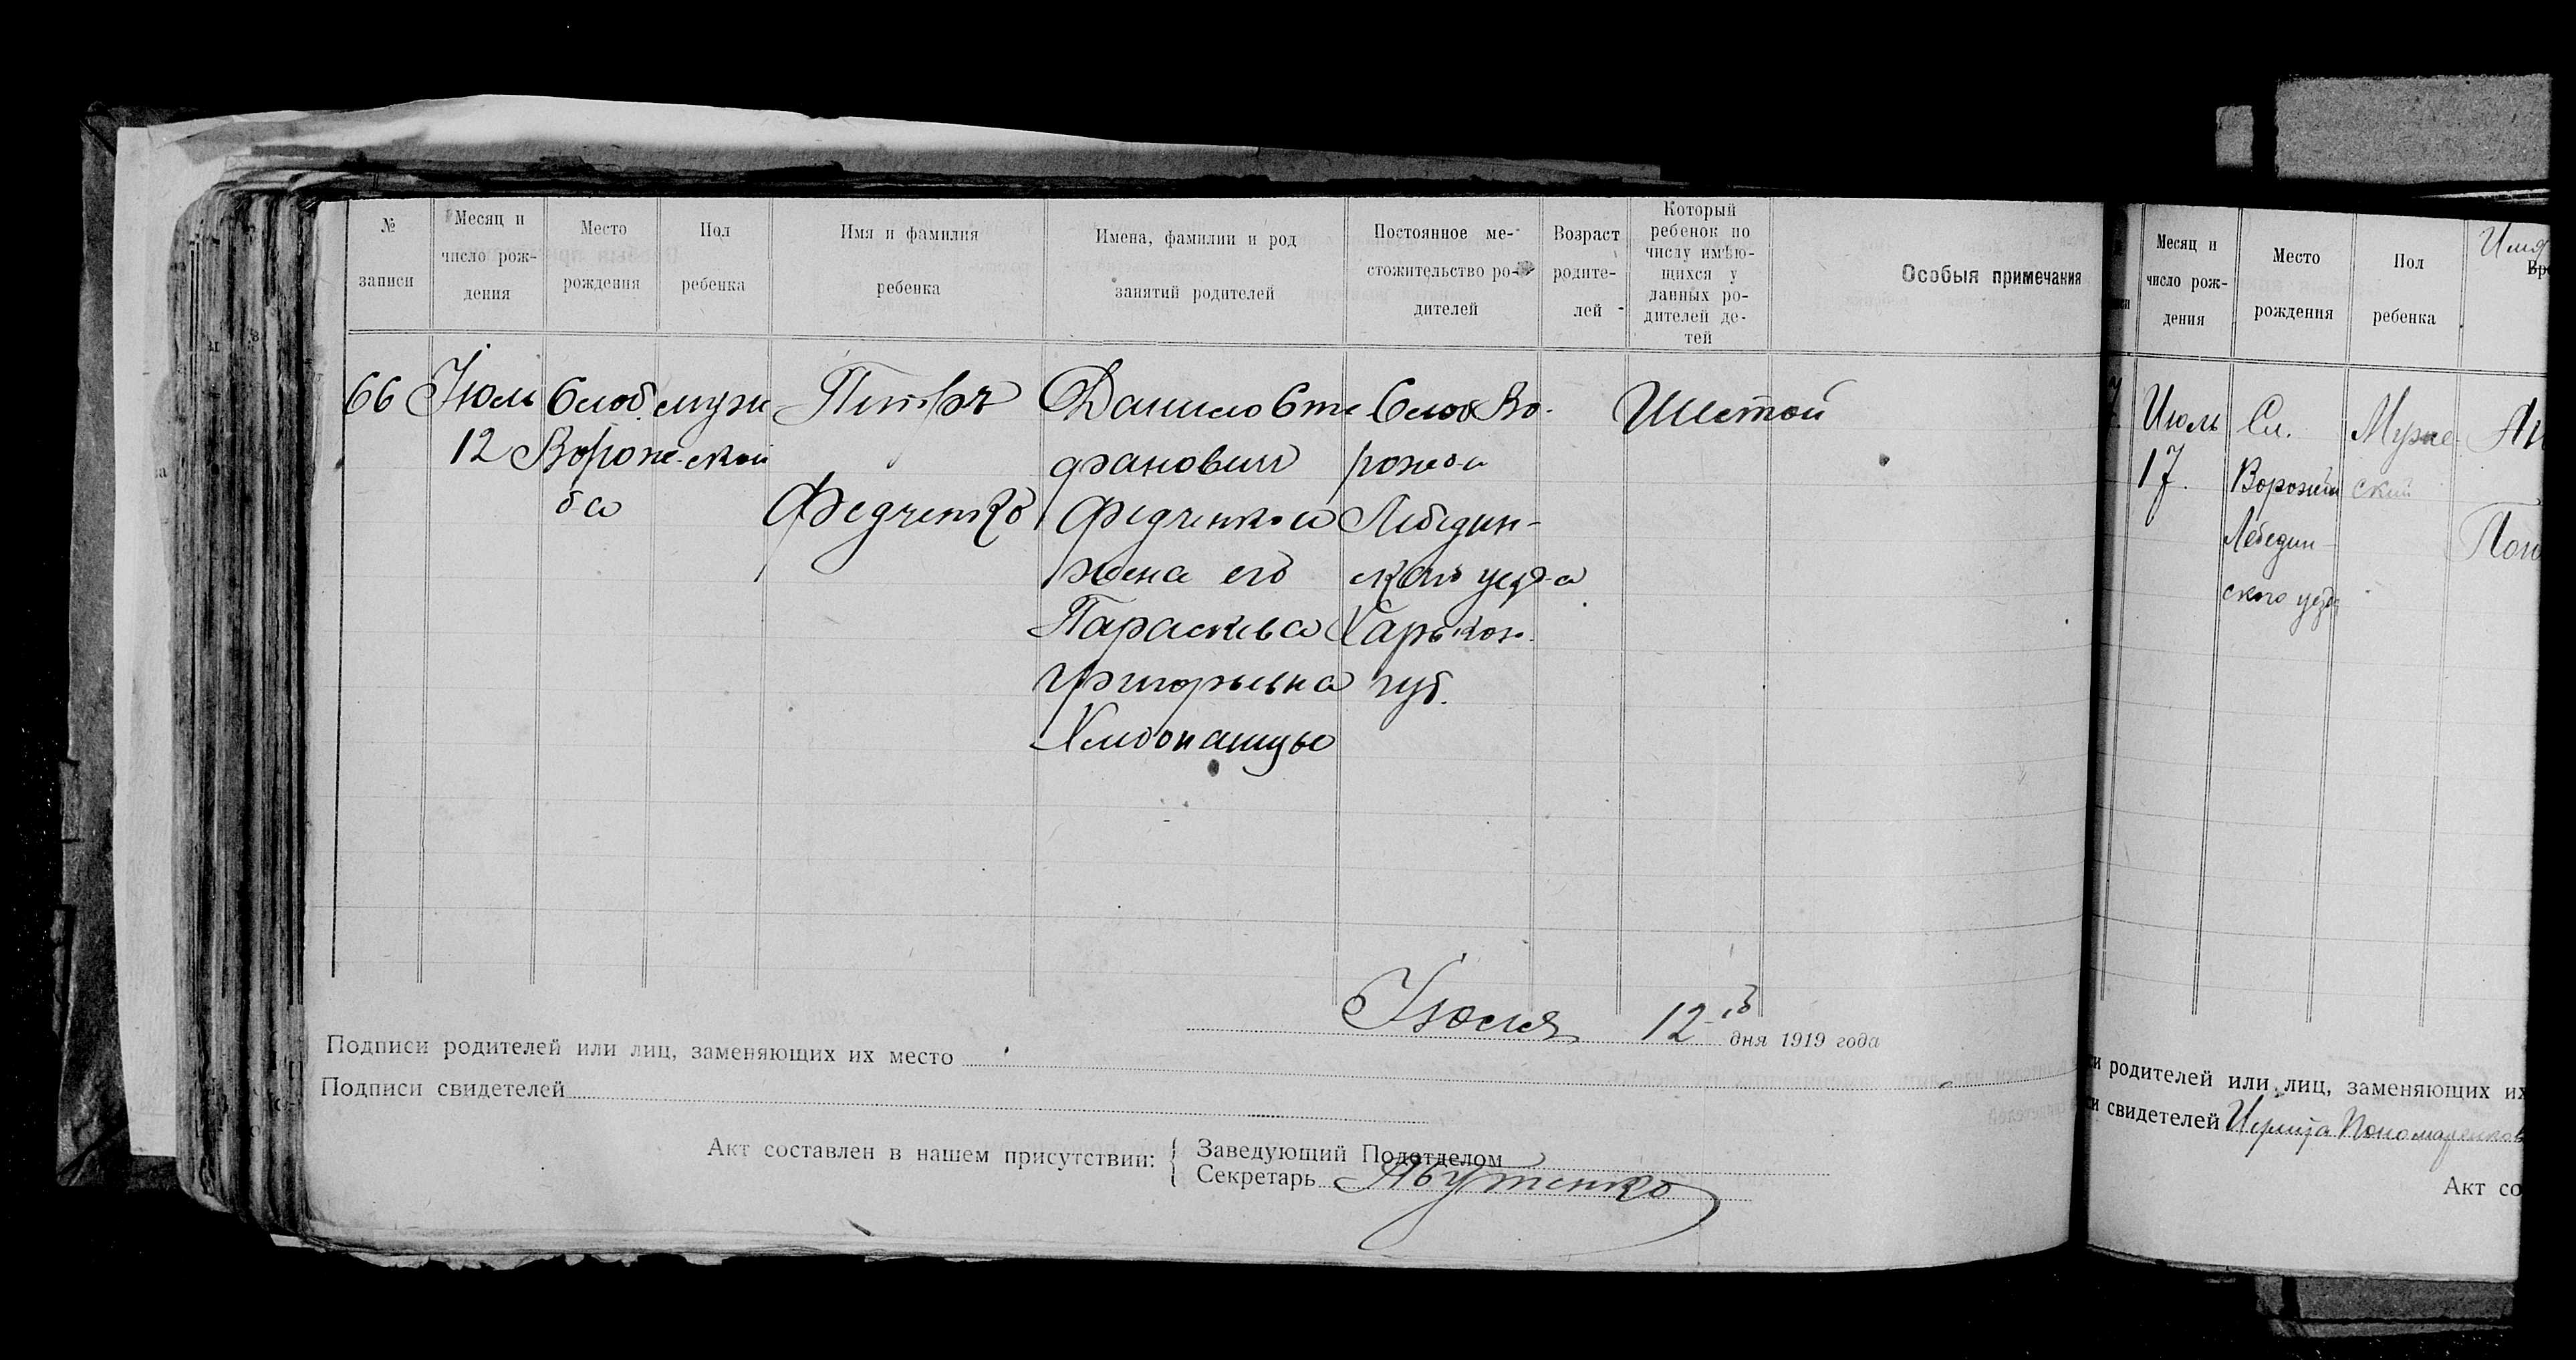 № записи
Месяц и число рождения
Место рождения
Пол ребенка
Имя и фамилия ребенка
Имена, фамилии и род занятий родителей
Постоянное местожительство родителей
Возраст родителей
Который ребенок по числу имѣющихся у данных родителей детей
Особыя примечания
66 Июль Слоб. муж Петръ Данило Сте Слоб Во- Шестой
12 Вороже ской фановичъ рожба
ба Федченко Федченко и Лебедин-
жена его скаго уезда
Параскева Харьков.
Григорьевна губ.
Хлебопашцы
Июля 12-го дня 1919 года
Подписи родителей или лиц, заменяющих их место
Подписи свидетелей
Акт составлен в нашем присутствии:
Заведующий Подотделом
Секретарь
Месяц и число рождения
Место рождения
Пол ребенка
Имя
Июль Сл. Муже-
17. Ворожба ский
Лебедин-
ского уезда
и родителей или лиц, заменяющих их
и свидетелей
Акт со